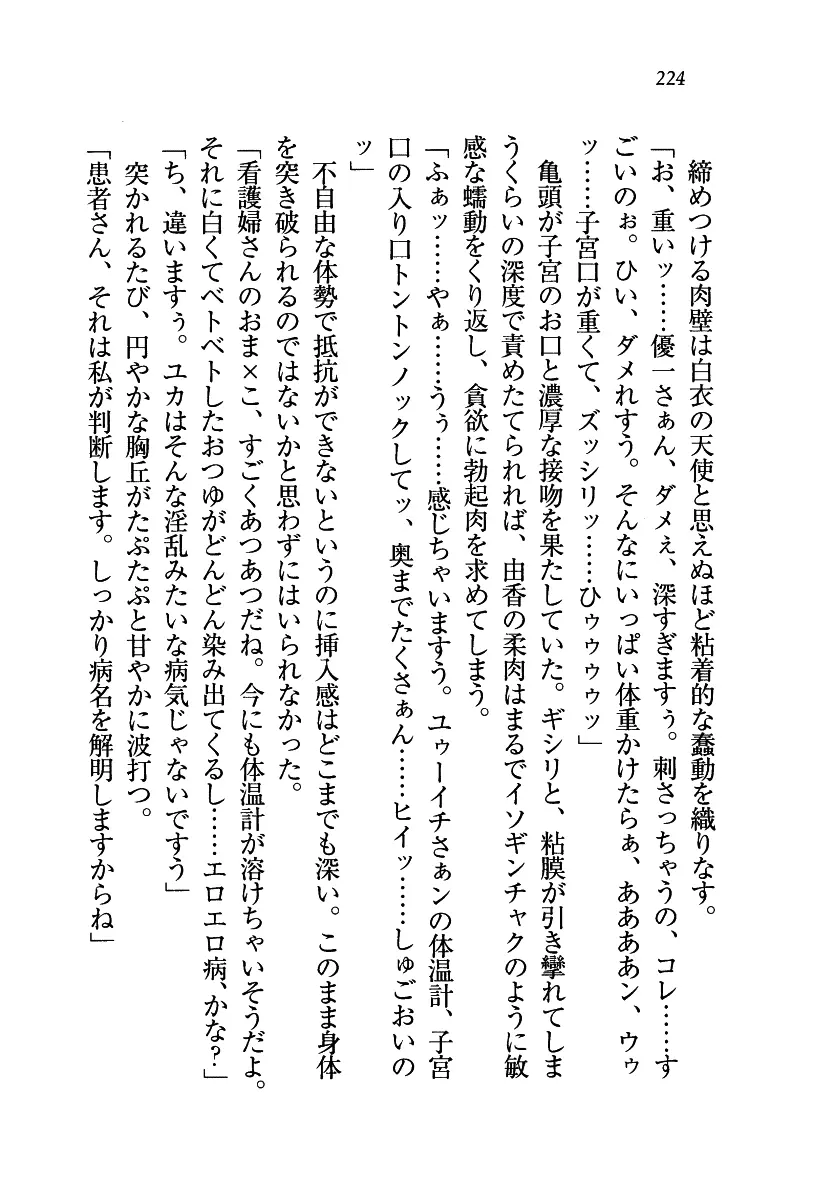 224
締めつける肉壁は白衣の天使と思えぬほど粘着的な蠢動を織りなす。
「お、重いッ……優一さぁん、ダメぇ、深すぎますぅ。刺さっちゃうの、コレ……す
ごいのぉ。ひい、ダメれすう。そんなにいっぱい体重かけたらぁ、ああああン、ウゥ
ッ……子宮口が重くて、ズッシリッ……ひゥゥゥゥッ」
亀頭が子宮のお口と濃厚な接吻を果たしていた。ギシリと、粘膜が引き攣れてしま
うくらいの深度で責めたてられれば、由香の柔肉はまるでイソギンチャクのように敏
感な蠕動をくり返し、貪欲に勃起肉を求めてしまう。
「ふぁッ……やぁ……うぅ……感じちゃいますう。ユゥーイチさぁンの体温計、子宮
口の入り口トントンノックしてッ、奥までたくさぁん……ヒイッ……しゅごおいの
ッ」
不自由な体勢で抵抗ができないというのに挿入感はどこまでも深い。このまま身体
を突き破られるのではないかと思わずにはいられなかった。
「看護婦さんのおま×こ、すごくあつあつだね。今にも体温計が溶けちゃいそうだよ。
それに白くてベトベトしたおつゆがどんどん染み出てくるし……エロエロ病、かな？」
「ち、違いますぅ。ユカはそんな淫乱みたいな病気じゃないですう」
突かれるたび、円やかな胸丘がたぷたぷと甘やかに波打つ。
「患者さん、それは私が判断します。しっかり病名を解明しますからね」